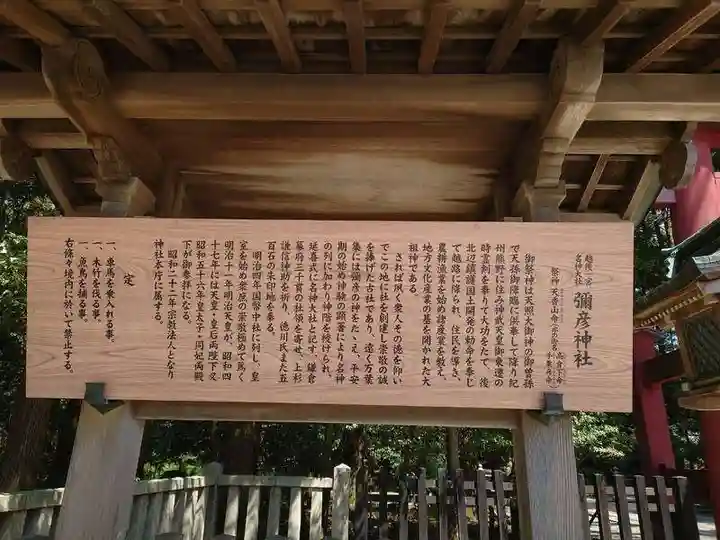 越後一宮
名神大社
彌彦神社
祭神 天香山命
御祭神は天照大御神の御曾孫
で天孫御降臨に供奉して降り紀
州熊野に住み神武天皇御東遷の
時霊剣を奉りて大功をたて、後
北辺鎮護国土開発の勅命を奉じ
て越路に降られ、住民を導き、
農耕漁業を始め諸産業を教え、
地方文化産業の基を開かれた大
祖神である。
されば夙く衆人その徳を仰い
でこの地に社を創建し崇敬の誠
を捧げた古社であり、遠く万葉
集には彌彦の神をたゝえ、平安
期の始め神験の顕著により名神
の列に加わり神階を授けられ、
延喜式に名神大社と記す、鎌倉
幕府三千貫の社領を寄せ、上杉
謙信神助を祈り、徳川氏また五
百石の朱印地を奉る。
明治四年国幣中社に列し、皇
室を始め衆庶の崇敬極めて篤く
明治十一年明治天皇が、昭和四
十七年には天皇・皇后両陛下又
昭和五十六年皇太子・同妃両殿
下が御参拝になる。
昭和二十二年宗教法人となり
神社本庁に属する。
定
一、車馬を乗入れる事。
一、木竹を伐る事。
一、魚鳥を捕る事。
右條々境内に於いて禁止する。